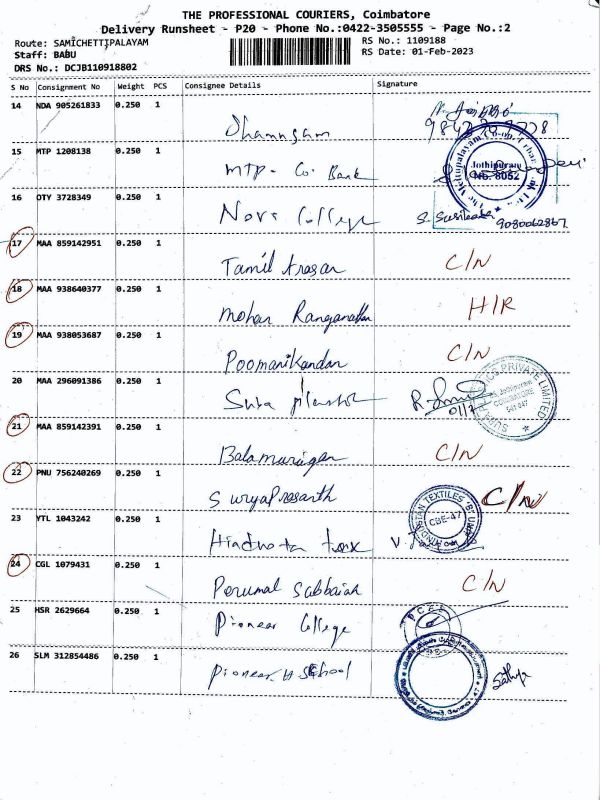 THE PROFESSIONAL COURIERS, Coimbatore
Delivery Runsheet - P20 - Phone No.:0422-3505555 - Page No.:2
Route: SAMICHETTIPALAYAM RS No.: 1109188
Staff: BABU RS Date: 01-Feb-2023
DRS No.: DCJB110918802
S No Consignment No Weight PCS Consignee Details Signature
14 NDA 905261833 0.250 1
15 MTP 1208138 0.250 1 MTP- Co. Bank
Jothipuram
NO. 8052
16 OTY 3728349 0.250 1 Nova College 9080062867
17 MAA 859142951 0.250 1 Tamil Arasan C/N
18 MAA 938640377 0.250 1 Mohan Ranganathan H/R
19 MAA 938053687 0.250 1 Poomanikandan C/N
20 MAA 296091386 0.250 1
PRIVATE LIMITED
Jothipuram
COIMBATORE
641 047
21 MAA 859142391 0.250 1 Balamurugan C/N
22 PNU 756240269 0.250 1 Suryaprasanth C/N
23 YTL 1043242 0.250 1
HINDUSTAN TEXTILES
CBE-47
24 CGL 1079431 0.250 1 Perumal Subbaiah C/N
25 HSR 2629664 0.250 1 Pioneer College
26 SLM 312854486 0.250 1 Pioneer H School